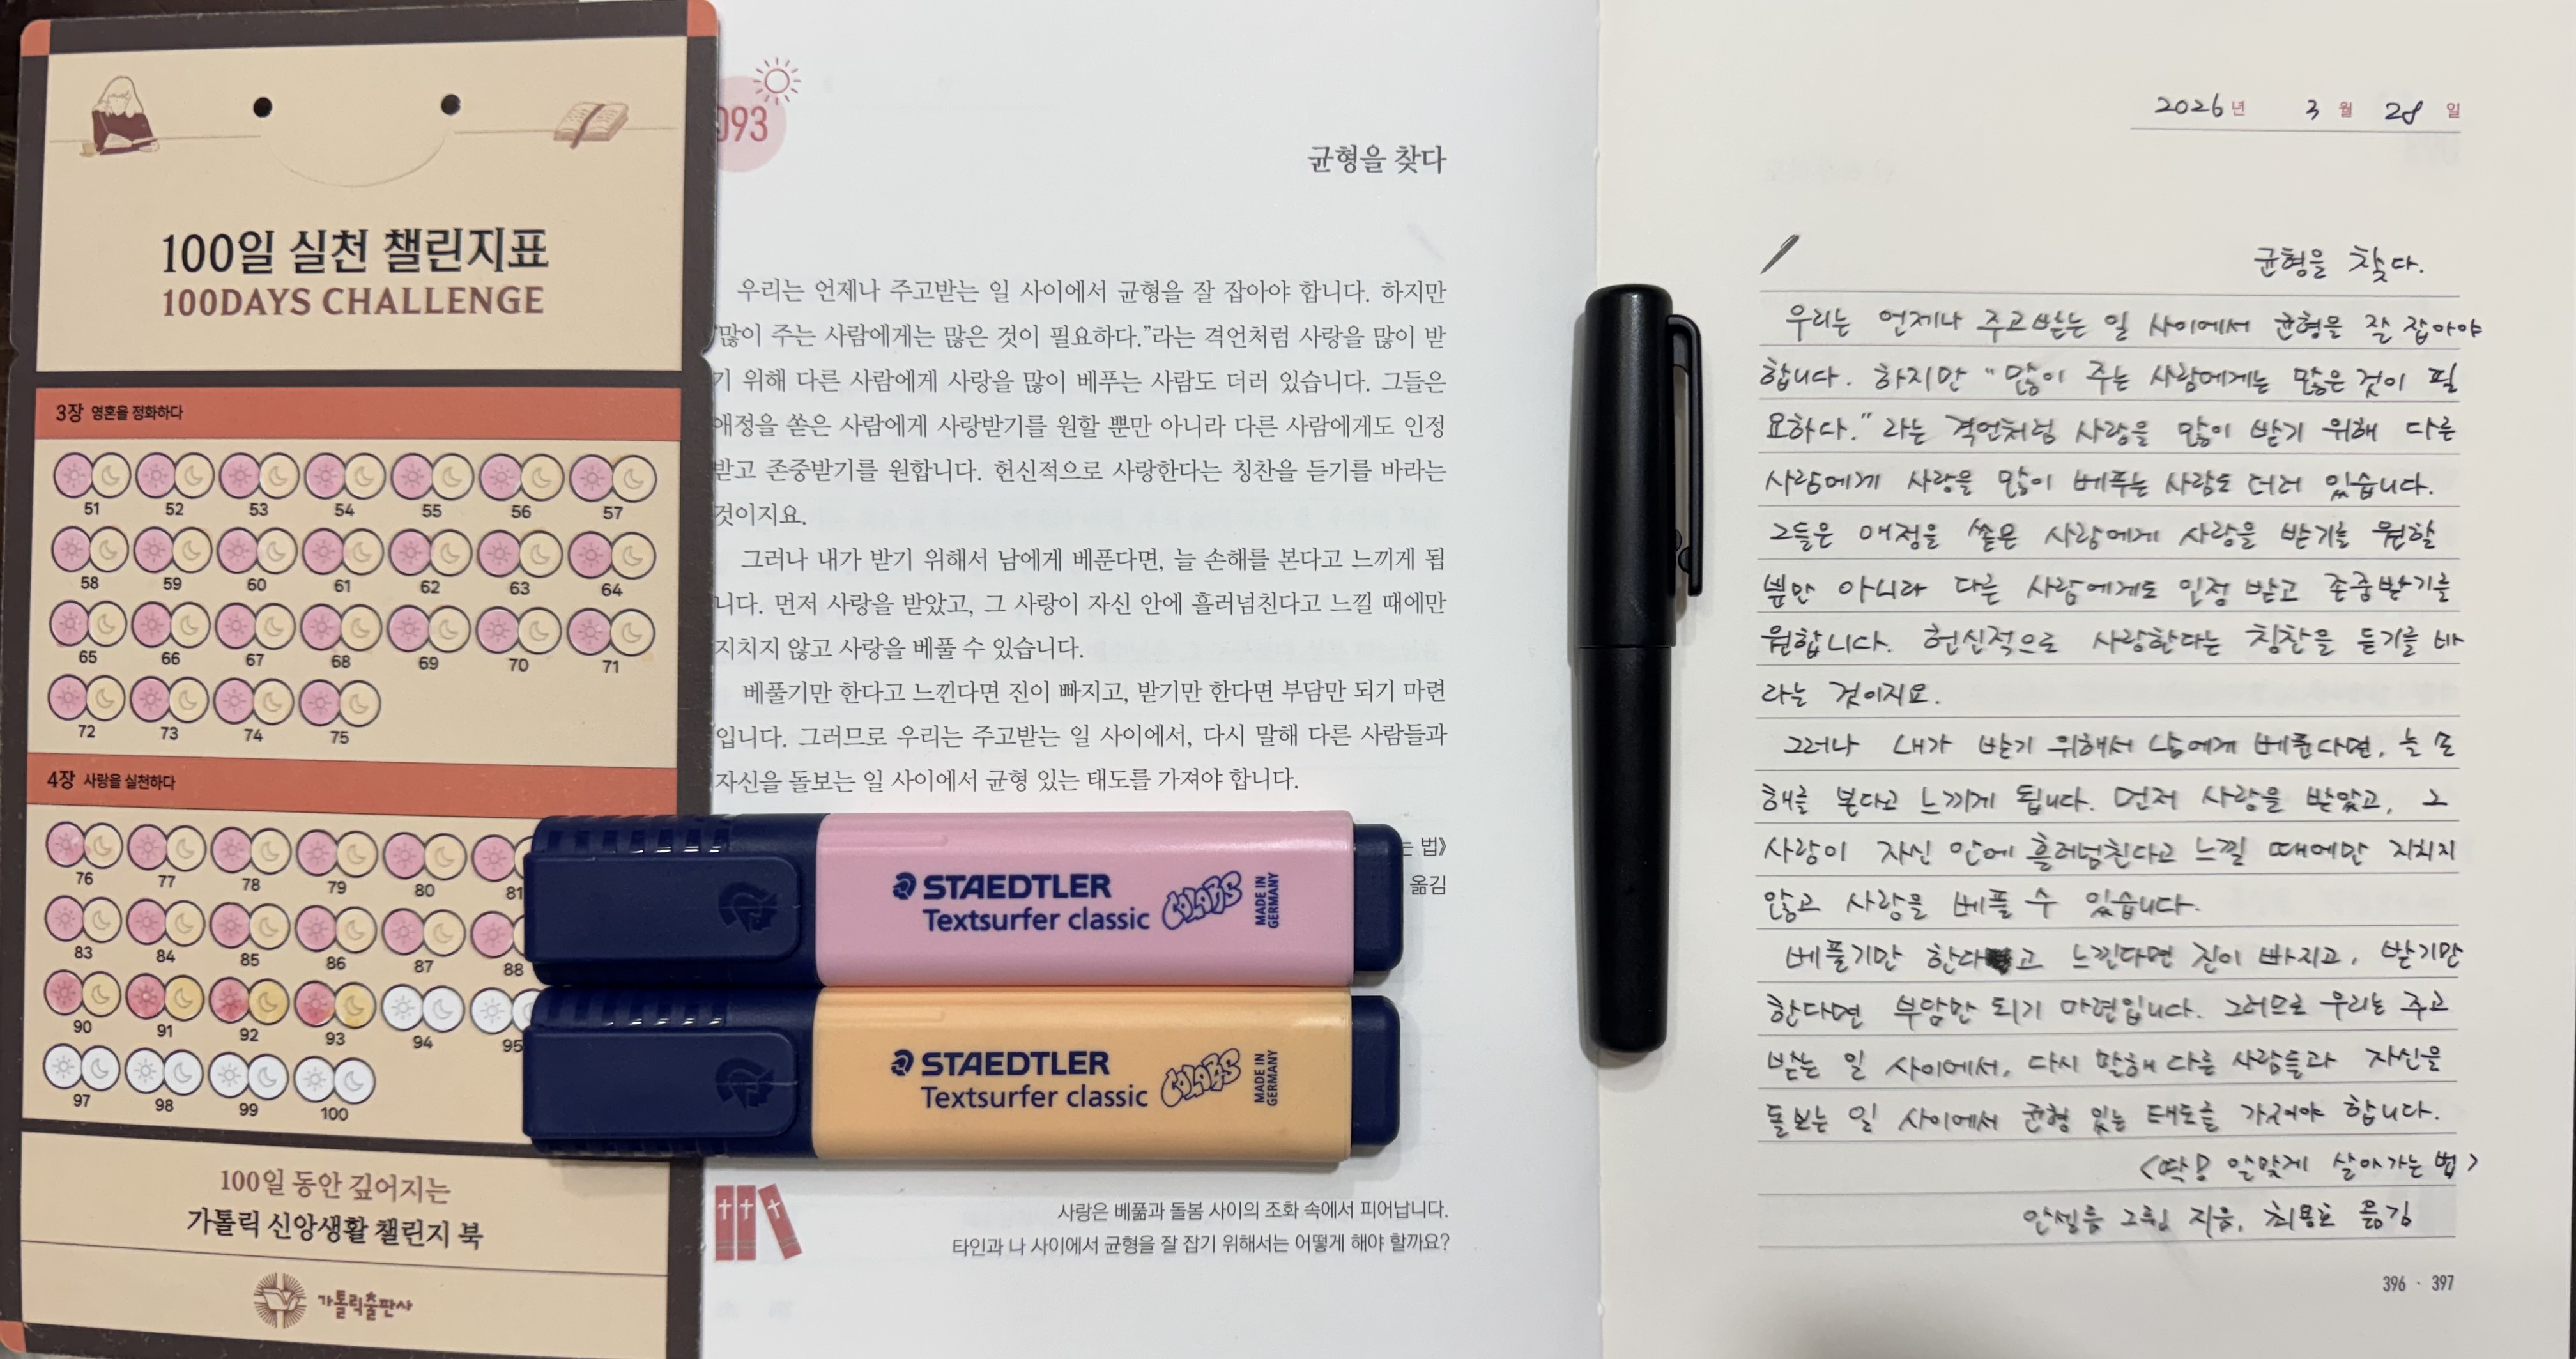 100일 실천 챌린지표
100DAYS CHALLENGE
3장 영혼을 정화하다
51 52 53 54 55 56 57
58 59 60 61 62 63 64
65 66 67 68 69 70 71
72 73 74 75
4장 사랑을 실천하다
76 77 78 79 80 81
83 84 85 86 87 88
90 91 92 93 94 95
97 98 99 100
100일 동안 깊어지는
가톨릭 신앙생활 챌린지 북
가톨릭출판사
093
균형을 찾다
우리는 언제나 주고받는 일 사이에서 균형을 잘 잡아야 합니다. 하지만
“많이 주는 사람에게는 많은 것이 필요하다.”라는 격언처럼 사랑을 많이 받
기 위해 다른 사람에게 사랑을 많이 베푸는 사람도 더러 있습니다. 그들은
애정을 쏟은 사람에게 사랑받기를 원할 뿐만 아니라 다른 사람에게도 인정
받고 존중받기를 원합니다. 헌신적으로 사랑한다는 칭찬을 듣기를 바라는
것이지요.
그러나 내가 받기 위해서 남에게 베푼다면, 늘 손해를 본다고 느끼게 됩
니다. 먼저 사랑을 받았고, 그 사랑이 자신 안에 흘러넘친다고 느낄 때에만
지치지 않고 사랑을 베풀 수 있습니다.
베풀기만 한다고 느낀다면 진이 빠지고, 받기만 한다면 부담만 되기 마련
입니다. 그러므로 우리는 주고받는 일 사이에서, 다시 말해 다른 사람들과
자신을 돌보는 일 사이에서 균형 있는 태도를 가져야 합니다.
는 법》
옮김
STAEDTLER
Textsurfer classic COLORS MADE IN GERMANY
STAEDTLER
Textsurfer classic COLORS MADE IN GERMANY
사랑은 베풂과 돌봄 사이의 조화 속에서 피어납니다.
타인과 나 사이에서 균형을 잘 잡기 위해서는 어떻게 해야 할까요?
2026년 3월 28일
균형을 찾다.
우리는 언제나 주고받는 일 사이에서 균형을 잘 잡아야
합니다. 하지만 “많이 주는 사람에게는 많은 것이 필
요하다.”라는 격언처럼 사랑을 많이 받기 위해 다른
사람에게 사랑을 많이 베푸는 사람도 더러 있습니다.
그들은 애정을 쏟은 사람에게 사랑을 받기를 원할
뿐만 아니라 다른 사람에게도 인정 받고 존중받기를
원합니다. 헌신적으로 사랑한다는 칭찬을 듣기를 바
라는 것이지요.
그러나 내가 받기 위해서 남에게 베푼다면, 늘 손
해를 본다고 느끼게 됩니다. 먼저 사랑을 받았고, 그
사랑이 자신 안에 흘러넘친다고 느낄 때에만 지치지
않고 사랑을 베풀 수 있습니다.
베풀기만 한다고 느낀다면 진이 빠지고, 받기만
한다면 부담만 되기 마련입니다. 그러므로 우리는 주고
받는 일 사이에서, 다시 말해 다른 사람들과 자신을
돌보는 일 사이에서 균형 있는 태도를 가져야 합니다.
<딱! 알맞게 살아가는 법>
안셀름 그륀 지음, 최용호 옮김
396 · 397